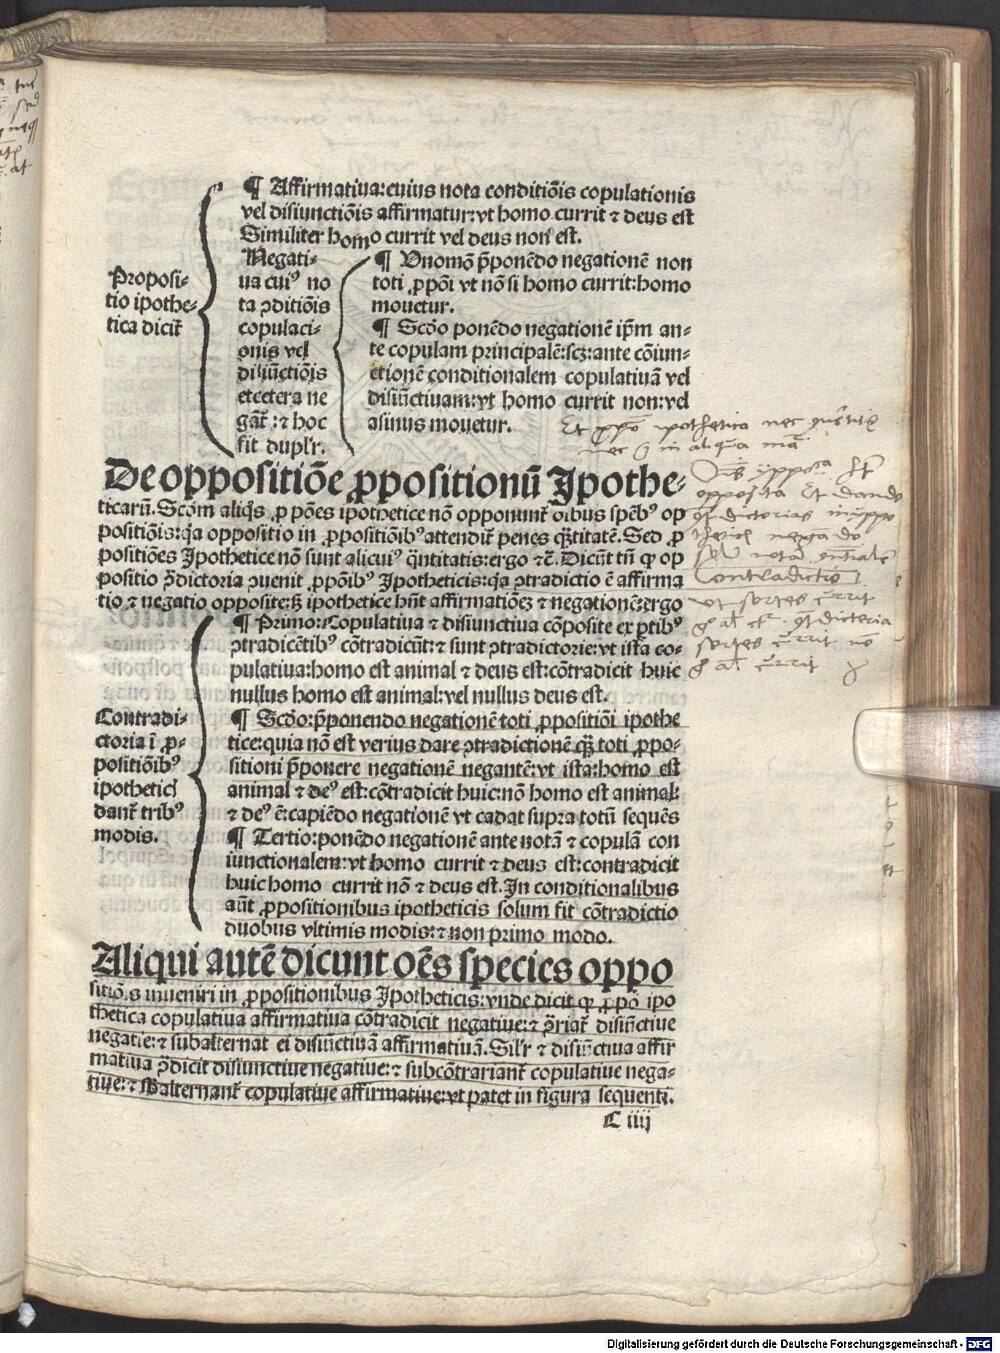 Propositio ipothetica dicit̃
¶ Affirmatiua:cuius nota conditiõis copulationis
vel disiunctiõis affirmatur:vt homo currit ⁊ deus est
Similiter homo currit vel deus non est.
Negati-
ua cuiꝰ no
ta ꝯditiõis
copulaci-
onis vel
disiũctiõis
etcetera ne
gat̃:⁊ hoc
fit dupl'r.
¶ Vnomõ p̃ponẽdo negationẽ non
toti ꝓpõi vt nõ si homo currit:homo
mouetur.
¶ Scd̃o ponẽdo negationẽ ip̃m an-
te copulam principalẽ:scꝫ:ante cõiun-
ctionẽ conditionalem copulatiuã vel
disiũctiuam:vt homo currit non:vel
asinus mouetur.
De oppositiõe ꝓpositionũ Ipothe-
ticarũ. Scd̃m aliq̃s ꝓpões ipothetice nõ opponunt̃ oĩbus spẽbꝰ op
positiõis:q̃a oppositio in ꝓpositiõibꝰ attendit̃ penes q̃ꝫtitatẽ. Sed ꝓ
positiões Ipothetice nõ sunt alicuiꝰ q̃ntitatis:ergo ⁊c̃. Dicũt tñ ꝙ op
positio ꝯ̃dictoria ꝯuenit ꝓpõibꝰ Ipotheticis:q̃a ꝯtradictio ẽ affirma
tio ⁊ negatio opposite:sꝫ ipothetice hñt affirmatiõeꝫ ⁊ negationẽ:ergo
Contradi-
ctoria ĩ ꝓ-
positiõibꝰ
ipotheticis
dant̃ tribꝰ
modis.
¶ Primo:Copulatiua ⁊ disiunctiua cõposite ex ꝑtibꝰ
ꝯtradicẽtibꝰ cõtradicũt:⁊ sunt ꝯtradictorie:vt ista co-
pulatiua:homo est animal ⁊ deus est:cõtradicit huic
nullus homo est animal:vel nullus deus est.
¶ Scd̃o:p̃ponendo negationẽ toti ꝓpositiõi ipothe
tice:quia nõ est verius dare ꝯtradictionẽ q̃ꝫ toti ꝓpo-
sitioni p̃ponere negationẽ negantẽ:vt ista:homo est
animal ⁊ deꝰ est:cõtradicit huic:nõ homo est animal:
⁊ deꝰ ẽ:capiẽdo negationẽ vt cadat supra totũ sequẽs
¶ Tertio:ponẽdo negationẽ ante notã ⁊ copulã con
iunctionalem:vt homo currit ⁊ deus est:contradicit
huic homo currit nõ ⁊ deus est. In conditionalibus
aũt ꝓpositionibus ipotheticis solum fit cõtradictio
duobus vltimis modis:⁊ non primo modo.
Aliqui autẽ dicunt oẽs species oppo
sitiõis inueniri in ꝓpositionibus Ipotheticis:vnde dicit ꝙ ꝓpõ ipo
thetica copulatiua affirmatiua cõtradicit negatiue:⁊ ꝯ̃riat̃ disiũctiue
negatie:⁊ subalternat ei disiũctiuã affirmatiuã. Sil'r ⁊ disiũctiua affir
matiua ꝯ̃dicit disiunctiue negatiue:⁊ subcõtrariant̃ copulatiue nega-
tiue:⁊ subalternant̃ copulatiue affirmatiue:vt patet in figura sequenti.
C iiij
Contradictio
Digitalisierung gefördert durch die Deutsche Forschungsgemeinschaft - DFG